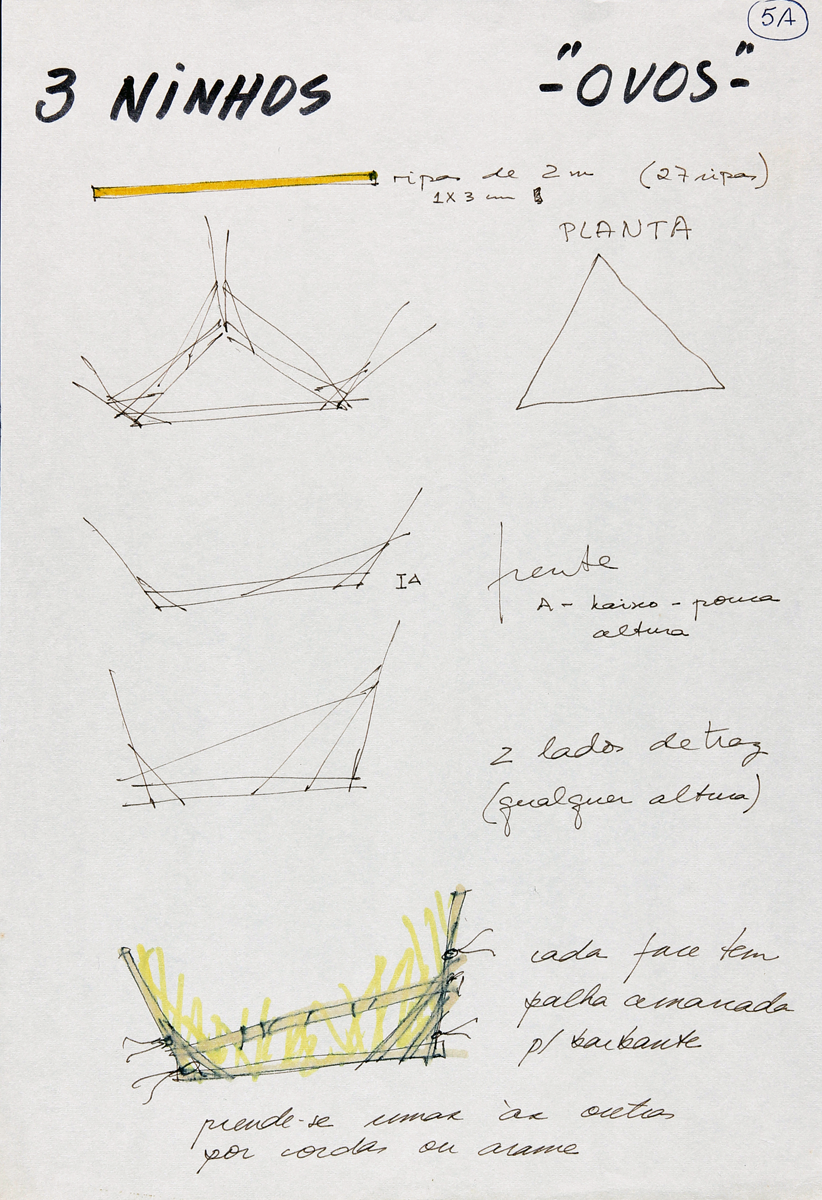 5A
3 NiNHOS
-"OVOS"-
ripas de 2 m (27 ripas)
1X3 cm
PLANTA
frente
A
A - baixo - pouca
altura
2 lados de traz
(qualquer altura)
cada face tem
palha amarrada
p/ barbante
prende-se umas às outras
por cordas ou arame